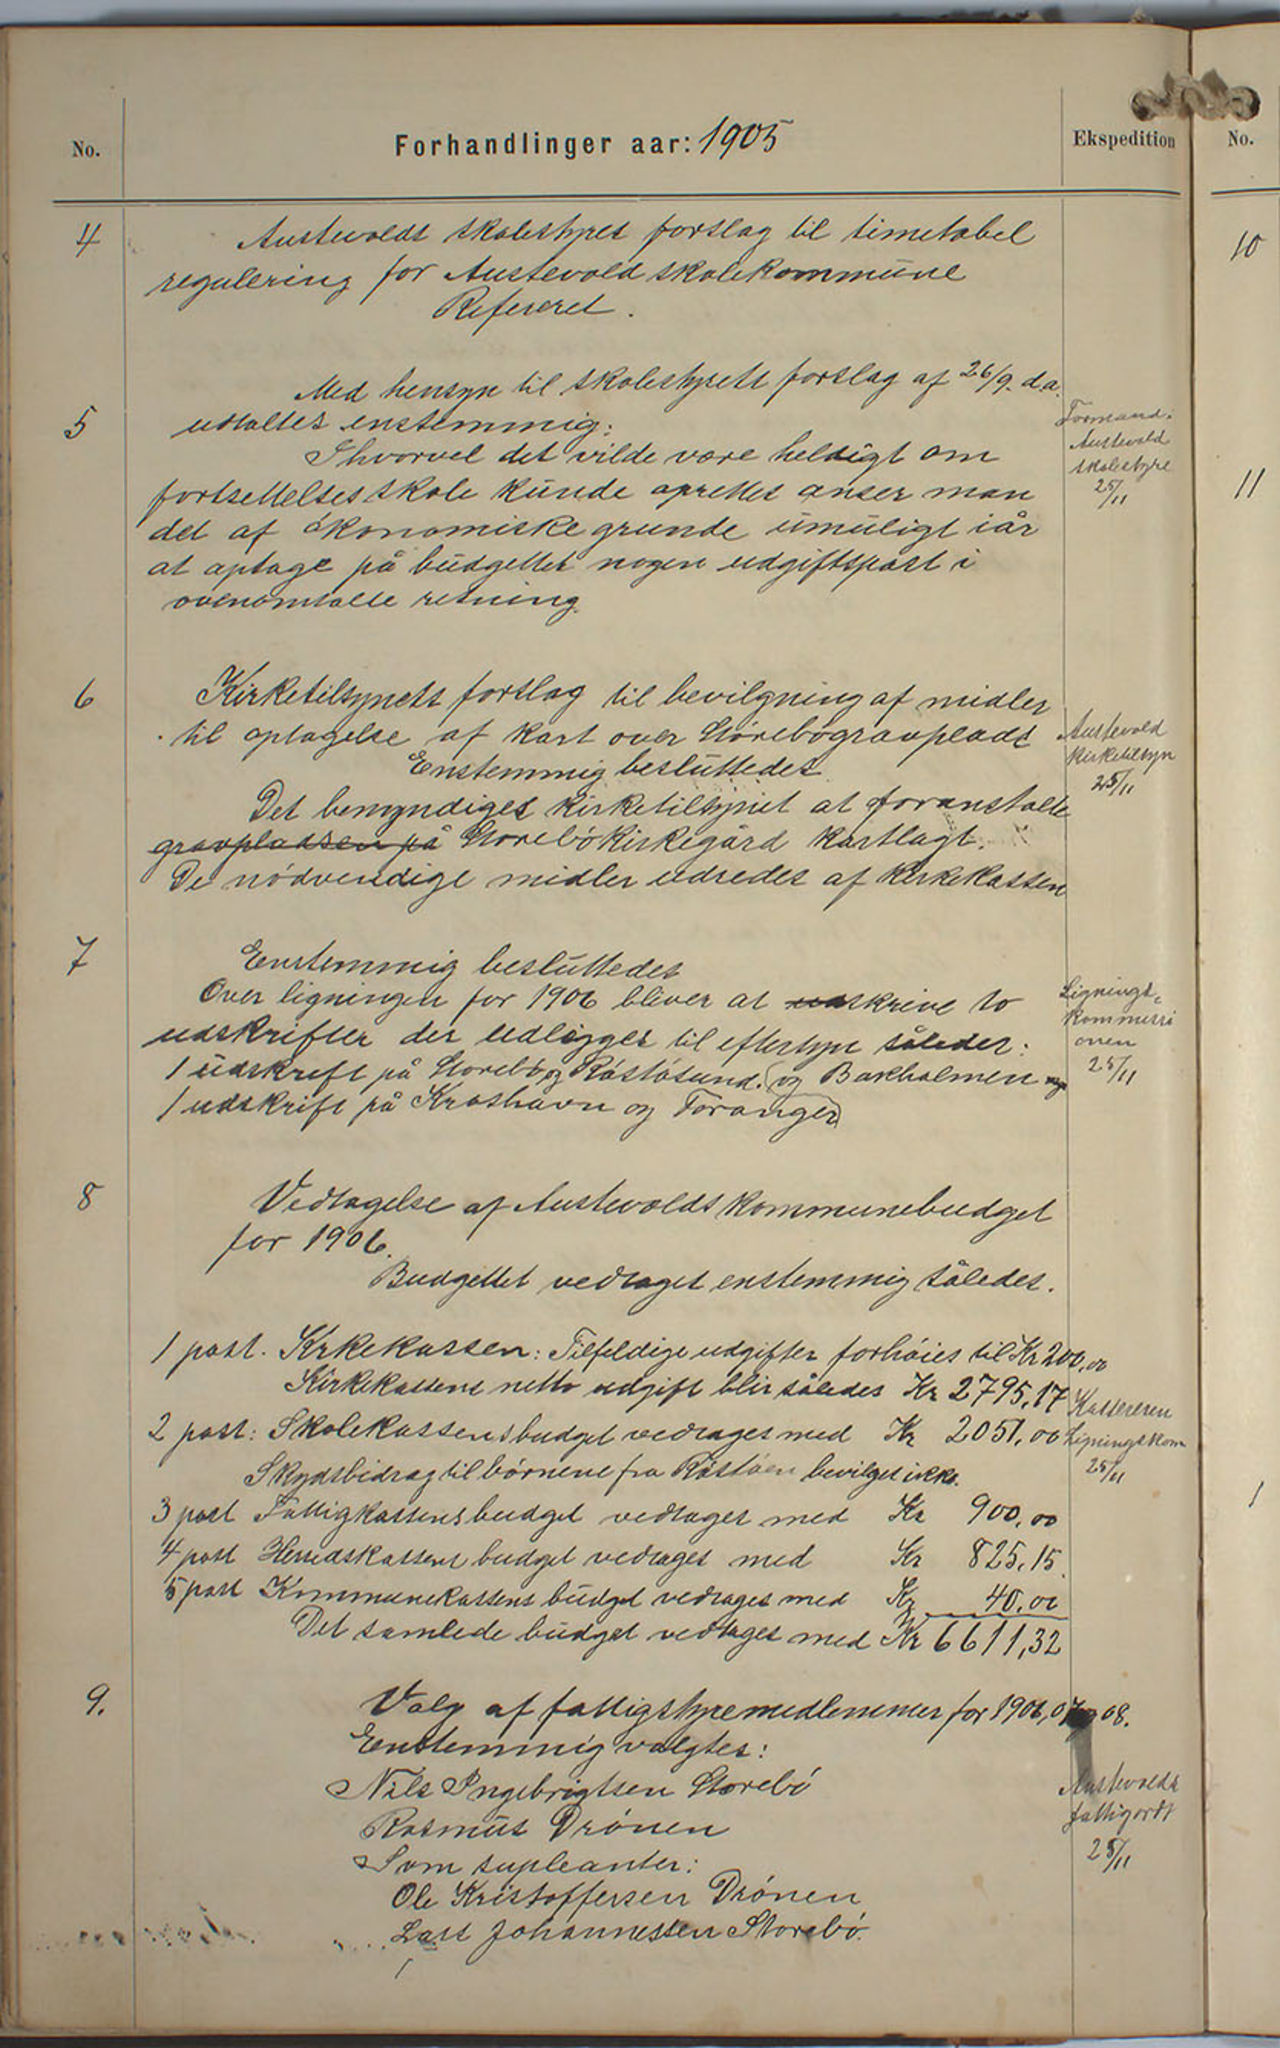 No.
Forhandlinger aar: 1905
Ekspedition
No.
4
Austevolds skolestyres forslag til timetabel
regulering for Austevold skolekommune
Refereret.
5
Med hensyn til skolestyrets forslag af 26/9 d.a.
udtaltes enstemmig:
Ihvorvel det vilde være heldigt om
fortsettelsesskole kunde oprettes anser man
det af ókonomiske grunde umuligt iår
at optage på budgettet nogen udgiftspost i
ovenomtalte retning.
Formand.
Austevold
skolestyre
25/11
6
Kirketilsynets forslag til bevilgning af midler
til optagelse af kart over Storebógravplads
Enstemmig besluttedes
Det bemyndiges kirketilsynet at foranstalte
gravpladsen på Storebókirkegård kartlagt.
De nódvendige midler udredes af kirkekassen
Austevold
kirketilsyn
25/11
7
Enstemmig besluttedes
Over ligningen for 1906 bliver at udskrive to
udskrifter der udlægges til eftersyn således:
1 udskrift på Storebó og Róstósund. (og Bakholmen
1 udskrift på Kroshavn og Toranger)
Lignings-
kommissi
onen
25/11
8
Vedtagelse af Austevolds kommunebudget
for 1906.
Budgettet vedtaget enstemmig således.
1 post. Kirkekassen: Tilfeldige udgifter forhóies til Kr 200,00
Kirkekassens netto udgift blir således Kr 2795,17
2 post: Skolekassens budget vedtages med Kr 2051,00
Skydsbidrag til bórnene fra Róstóen bevilges ikke.
3 post Fattigkassens budget vedtages med Kr 900,00
4 post Herredskassens budget vedtages med Kr 825,15
5 post Kommunekassens budget vedtages med Kr 40,00
Det samlede budget vedtages med Kr 6611,32
Kassereren
Ligningskom
25/11
9.
Valg af fattigstyremedlemmer for 1906, 07 og 08.
Enstemmig valgtes:
Nils Ingebrigtsen Storebó
Rasmus Drónen
Som supleanter:
Ole Kristoffersen Drónen
Lars Johannessen Storebó.
Austevolds
fattigordf
25/11
10
11
1